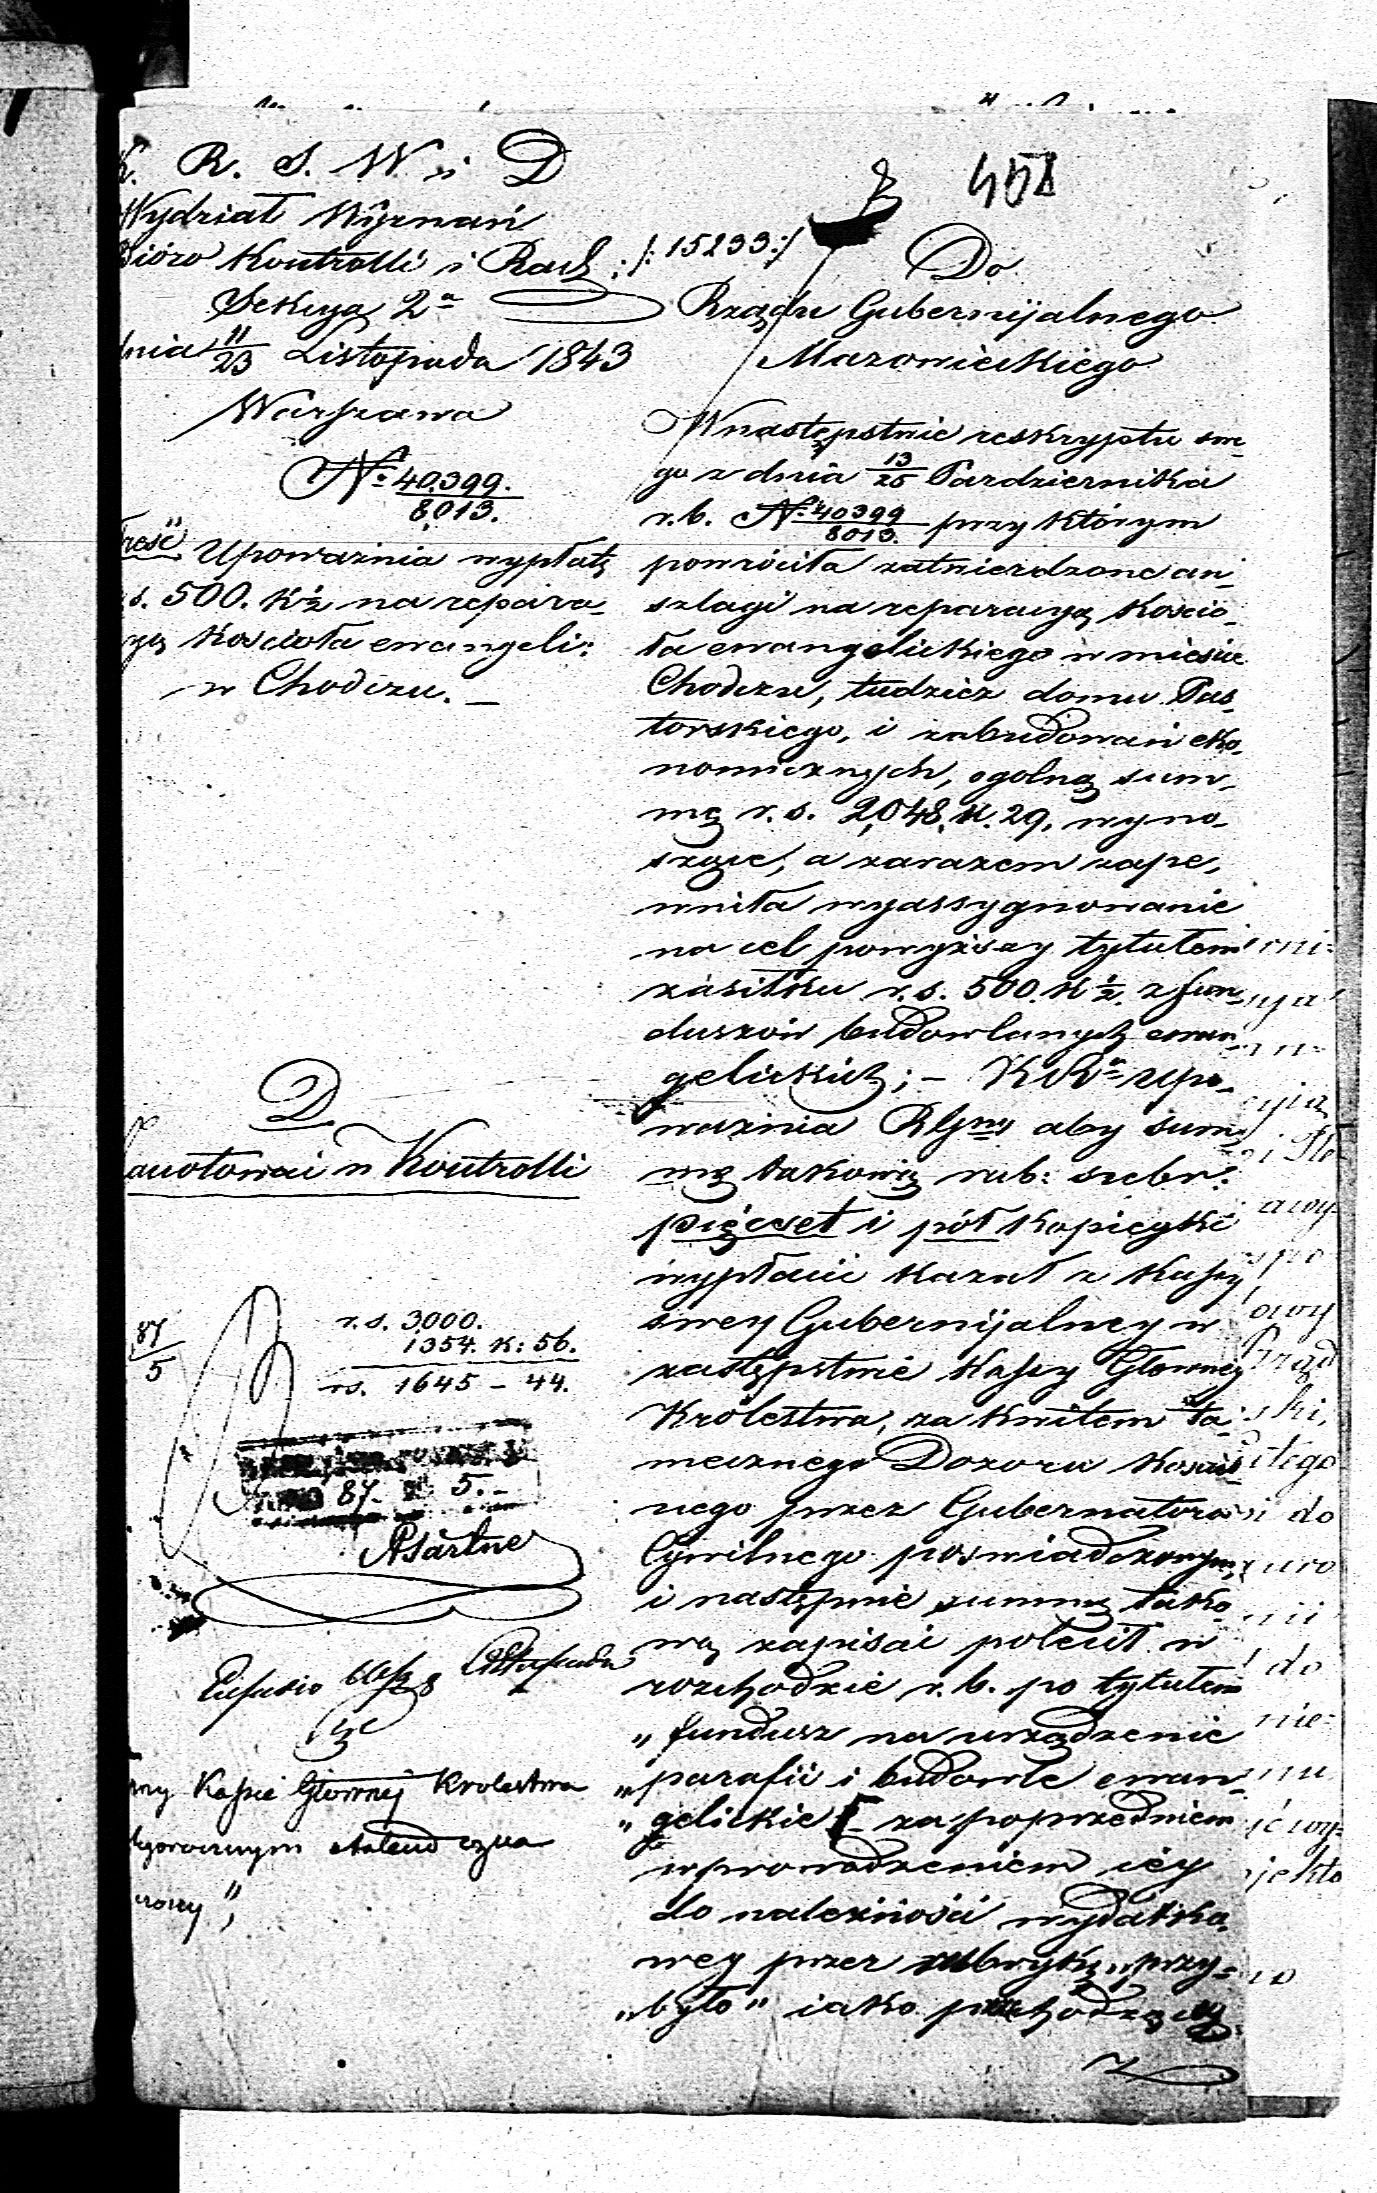 K. R. S. W. i D
Wydział Wyznań
Bióro Kontrolli i Rach: /:15233:/
Sekcya 2ª
dnia 11/23 Listopada 1843
Warszawa
Nº 40,399.
8013.
Treść Upoważnia wypłatę
r.s. 500. k ½ na repara-
cyą kościoła ewangeli:
w Chodczu. –
D.
Zanotować w Kontrolli
r.s. 3,000.
1354. k: 56.
rs. 1645 – 44.
87
5
87. 5.–
Kassie Głownej Krolestwa
454
Do
Rządu Gubernijalnego
Mazowieckiego
W następstwie reskryptu swe-
go z dnia 13/25 Pazdziernika
r.b. Nº 40399/8013. przy którym
powróciła zatwierdzone an-
szlagi na reparacyą kościo-
ła ewangelickiego w mieście
Chodczu, tudzież domu Pas-
torskiego, i zabudowań eko-
nomicznych, ogolną sum-
mę r.s. 2,048, k. 29. wyno-
szące, a zarazem zape-
wniła wyassygnowanie
na cel powyższy tytułem
zasiłku r.s. 500. k ½. z fun-
duszów budowlanych ewan-
gelickich; – upo-
ważnia aby sum-
mę takową rub: srebr:
pięcset i pół kopieyki
wypłacić kazał z Kassy
swey Gubernijalney w
zastępstwie Kassy Głowney
Królestwa, za kwitem ta-
mecznego Dozoru Kosciel-
nego przez Gubernatora
Cywilnego poswiadczonym,
i następnie summę tako-
wą zapisać polecił w
rozchodzie r.b. po tytułem
„fundusz na urządzenie
„parafii i budowle ewan-
„gelickie za poprzedniem
wprowadzeniem iéy
do należności wydatko-
wey przez rubrykę „przy-
„było" iako pochodzącey
z